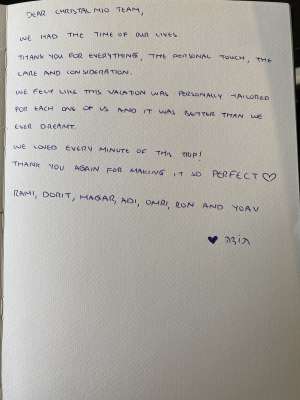 DEAR CHRISTAL MIO TEAM,
WE HAD THE TIME OF OUR LIVES
THANK YOU FOR EVERYTHING, THE PERSONAL TOUCH, THE
CARE AND CONSIDERATION.
WE FELT LIKE THIS VACATION WAS PERSONALLY TAILORED
FOR EACH ONE OF US AND IT WAS BETTER THAN WE
EVER DREAMT.
WE LOVED EVERY MINUTE OF THIS TRIP!
THANK YOU AGAIN FOR MAKING IT SO PERFECT ♡
RAMI, DORIT, HAGAR, ADI, OMRI, RON AND YOAV
♥ תודה